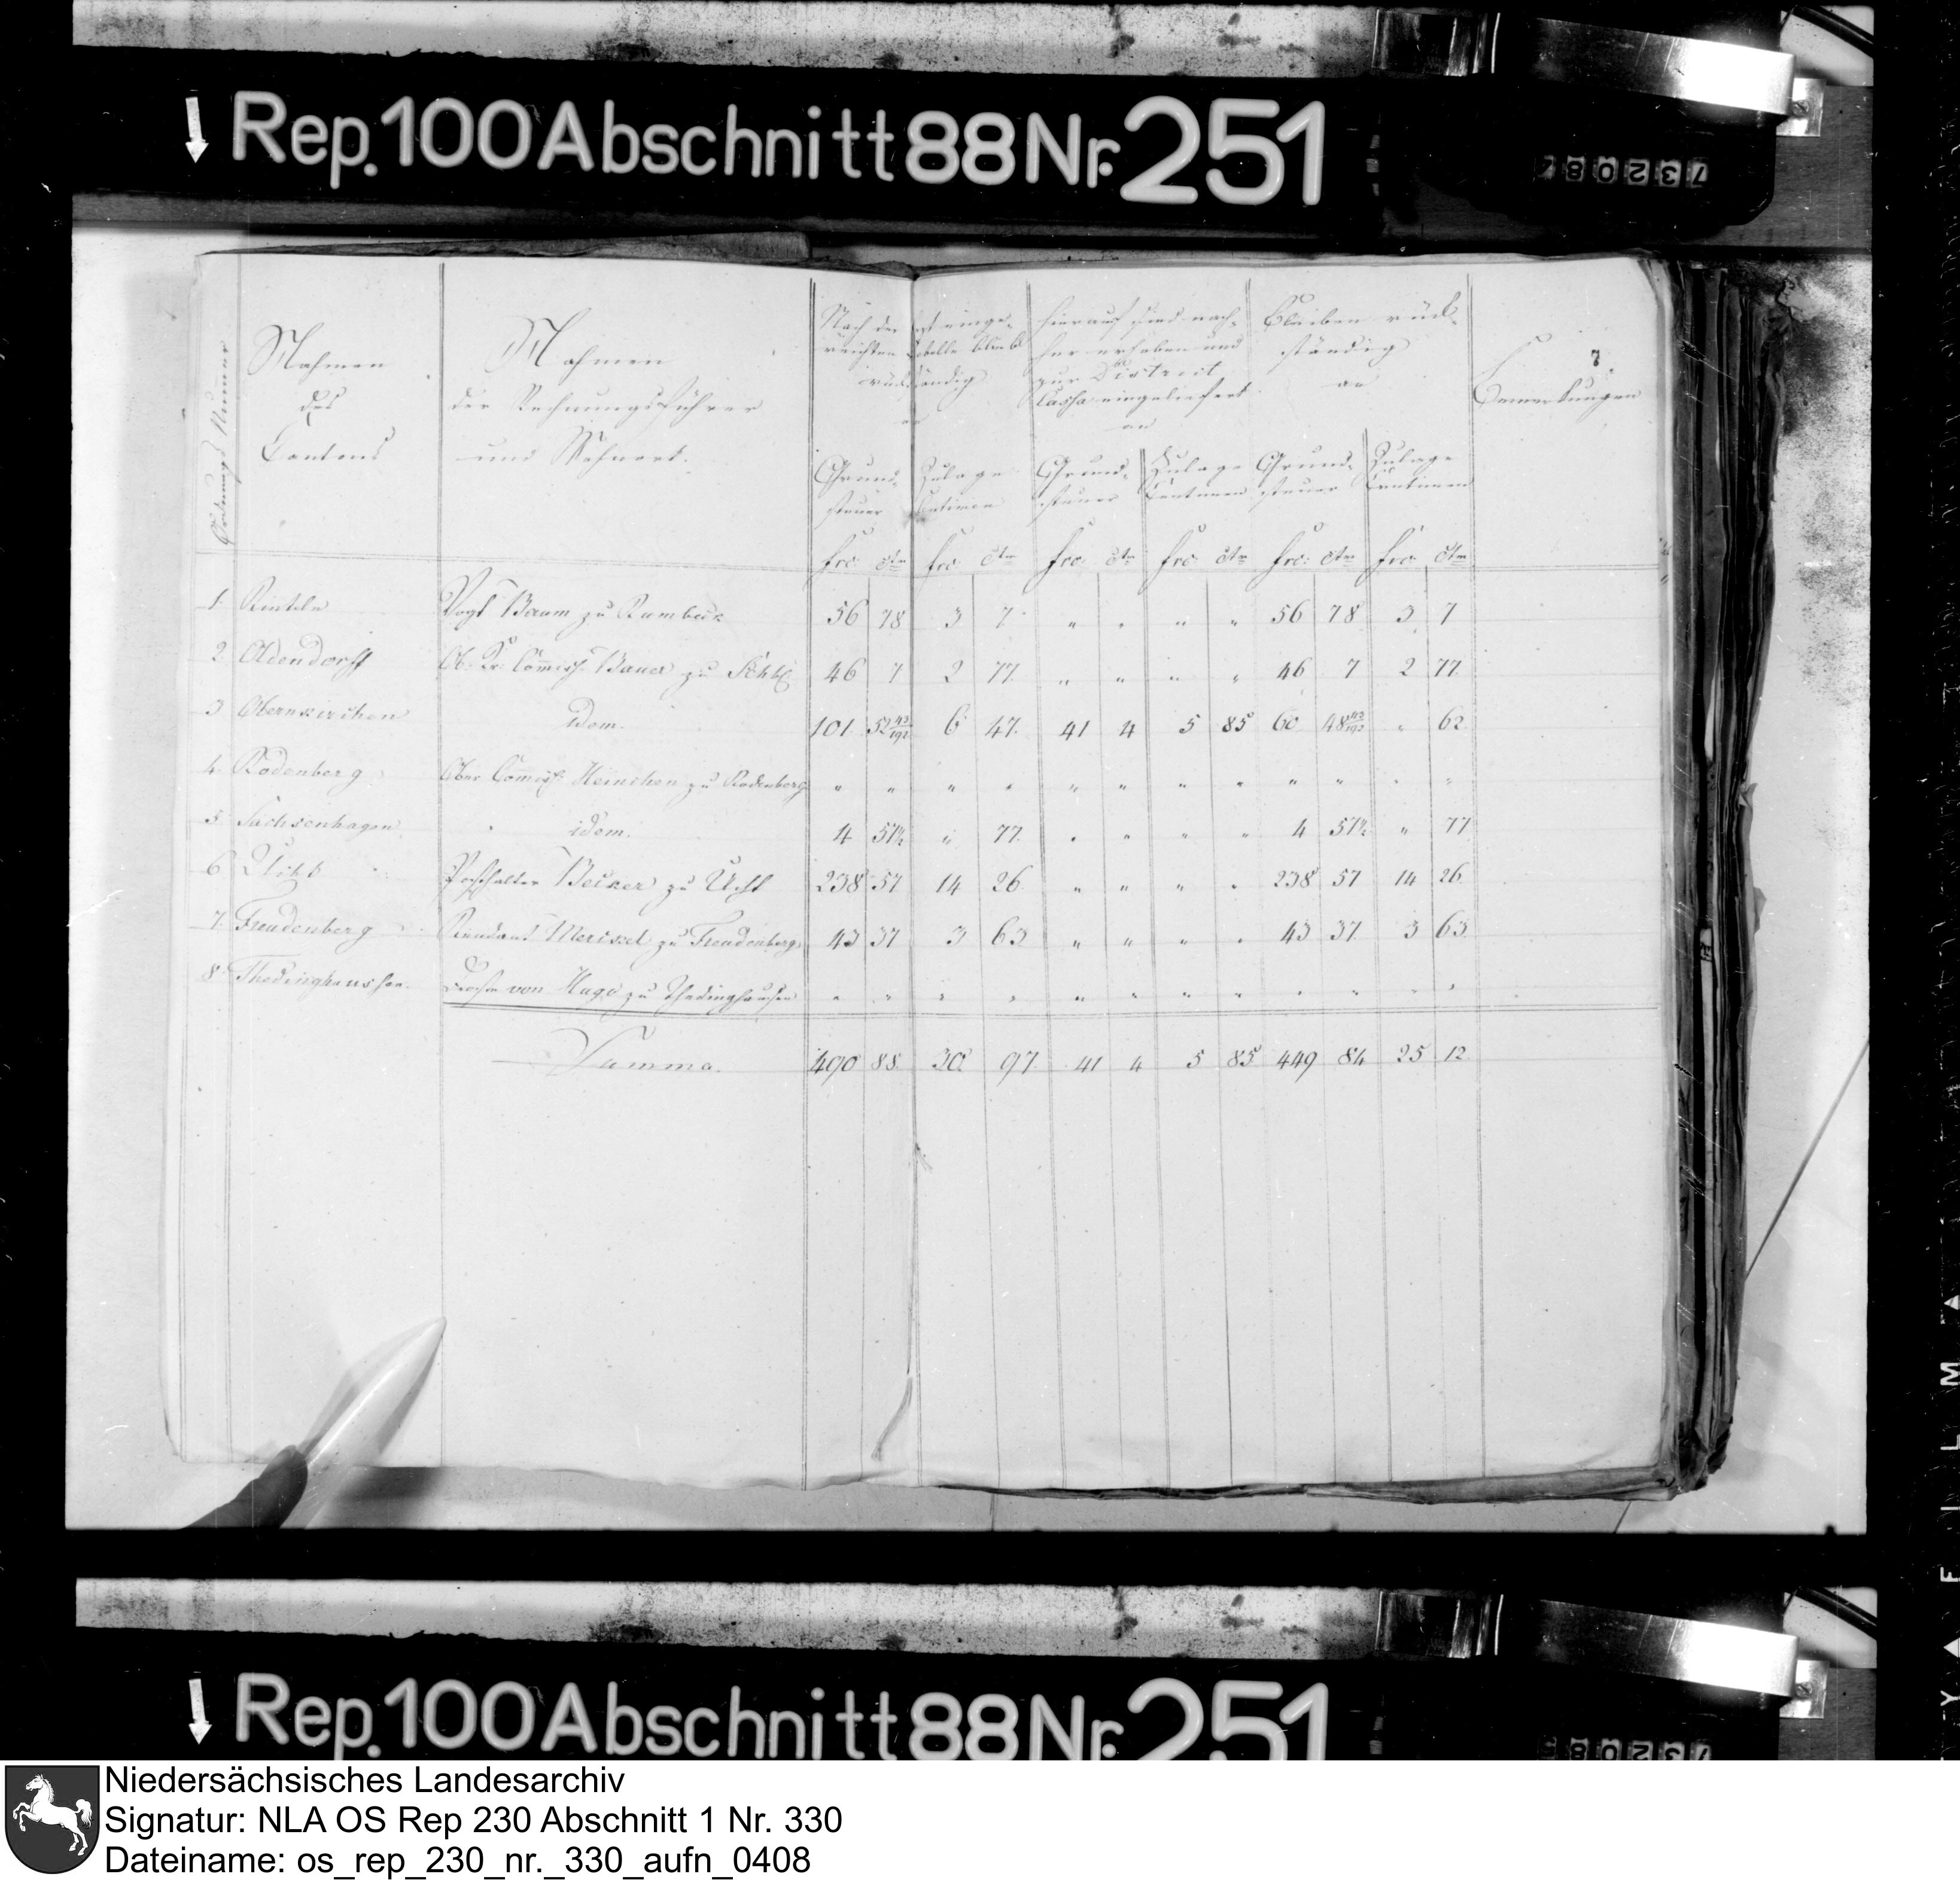 Rep. 100 Abschnitt 88 Nr. 251
732087
7
Ordnungs Nummer
Nahmen
des
Cantons
Nahmen
der Rechnungsführer
und Wohnort.
Nach der
reichten Tabelle blieb
rückständig
an
hierauf sind nach-
her erhoben und
zur District
Cassa eingeliefert
an
Bleiben rück-
ständig
an
Bemerkungen
Grund- Zulage Grund- Zulage Grund- Zulage
steuer Centimen steuer Centimen steuer Centimen
frc: ctm frc: ctm frc: ctm frc: ctm frc: ctm frc: ctm
1. Rinteln Vogt Baum zu Rumbeck 56 78 3 7 " " " " 56 78 3 7
2 Oldendorff Commiss. Bauer zu 46 7 2 77. " " " " 46 7 2 77.
3 Obernkirchen Idem. 101 52 43/192 6 47. 41 4 5 85 60 48 43/192 " 62
4. Rodenberg Ober Commiss. Heinichen zu Rodenberg " " " " " " " " " " " "
5 Sachsenhagen idem. 4 57½ " 77. " " " " 4 57½ " 77
6 Ucht Posthalter Becker zu Ucht 238 57 14 26 " " " " 238 57 14 26
7. Freudenberg Rendant zu Freudenberg 43 37 3 63 " " " " 43 37. 3 63
8 Thedinghaussen Droste von Hugo zu Thedinghausen " " " " " " " " " " " "
Summa. 490 88. 30. 97. 41 4 5 85 449 84 25 12
Rep. 100 Abschnitt 88 Nr. 251
Niedersächsisches Landesarchiv
Signatur: NLA OS Rep 230 Abschnitt 1 Nr. 330
Dateiname: os_rep_230_nr._330_aufn_0408